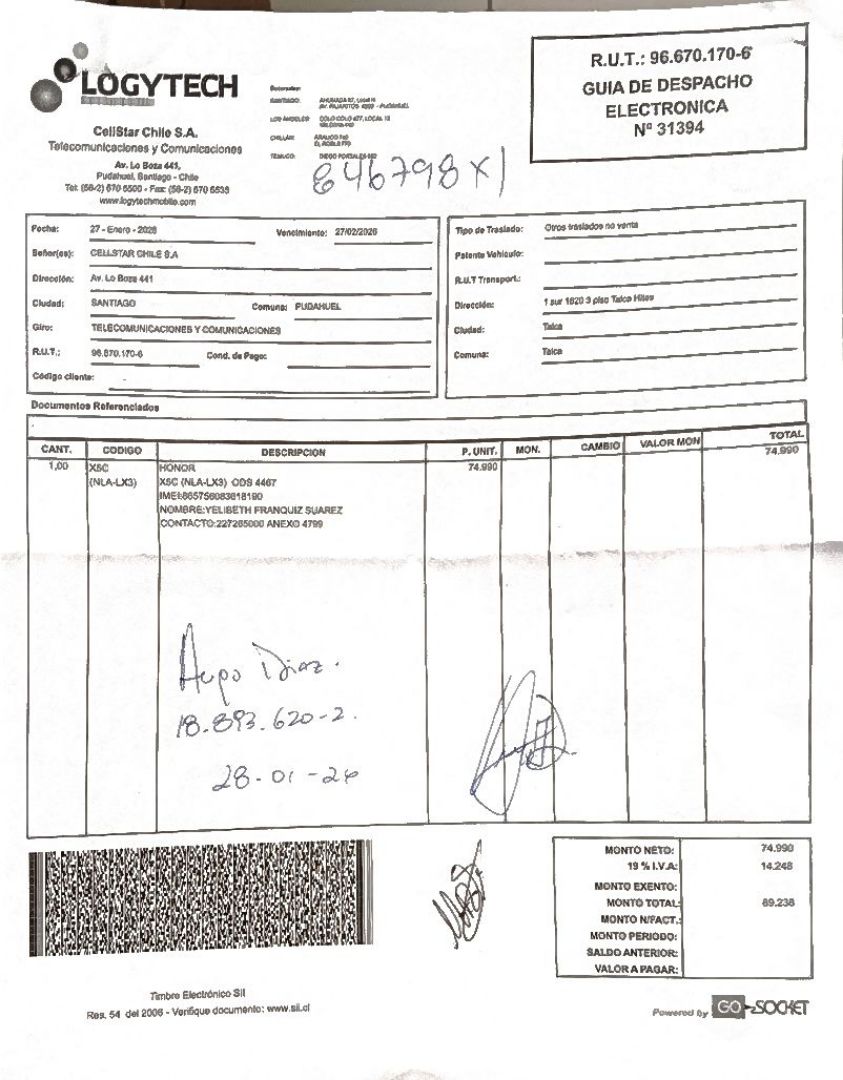 LOGYTECH
CellStar Chile S.A.
Telecomunicaciones y Comunicaciones
Av. Lo Boza 441,
Pudahuel, Santiago - Chile
Tel: (56-2) 670 6500 - Fax: (56-2) 670 6539
www.logytechmobile.com
Sucursales:
SANTIAGO: AHUMADA 87, Local H
LOS ANGELES: COLO COLO 477, LOCAL 13
CHILLAN: ARAUCO 740
EL ROBLE 770
TEMUCO:
846798 X 1
R.U.T.: 96.670.170-6
GUIA DE DESPACHO
ELECTRONICA
N° 31394
Fecha: 27 - Enero - 2026 Vencimiento: 27/02/2026
Señor(es): CELLSTAR CHILE S.A
Dirección: Av. Lo Boza 441
Ciudad: SANTIAGO Comuna: PUDAHUEL
Giro: TELECOMUNICACIONES Y COMUNICACIONES
R.U.T.: 96.670.170-6 Cond. de Pago:
Código cliente:
Tipo de Traslado: Otros traslados no venta
Patente Vehículo:
R.U.T Transport.:
Dirección: 1 sur 1620 3 piso Talca Hites
Ciudad: Talca
Comuna: Talca
Documentos Referenciados
CANT. CODIGO DESCRIPCION P. UNIT. MON. CAMBIO VALOR MON TOTAL
1,00 X5C HONOR 74.990 74.990
(NLA-LX3) X5C (NLA-LX3) ODS 4467
IMEI:865756083618190
NOMBRE:YELIBETH FRANQUIZ SUAREZ
CONTACTO:227265000 ANEXO 4799
Hugo Diaz.
18.893.620-2.
28-01-26
MONTO NETO: 74.990
19 % I.V.A: 14.248
MONTO EXENTO:
MONTO TOTAL: 89.238
MONTO N/FACT.:
MONTO PERIODO:
SALDO ANTERIOR:
VALOR A PAGAR:
Timbre Electrónico SII
Res. 54 del 2006 - Verifique documento: www.sii.cl
Powered by GO SOCKET